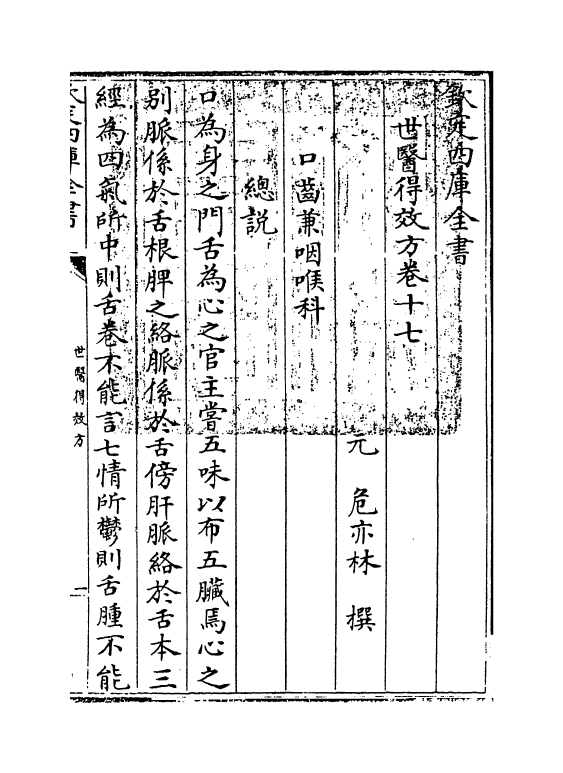 欽定四庫全書
世醫得效方卷十七
元 危亦林 撰
口齒兼咽喉科
總説
口為身之門舌為心之官主嘗五味以布五臟焉心之
别脈係於舌根脾之絡脈係於舌傍肝脈絡於舌本三
經為四氣所中則舌卷不能言七情所鬱則舌腫不能
欽定四庫全書
世醫得效方
一